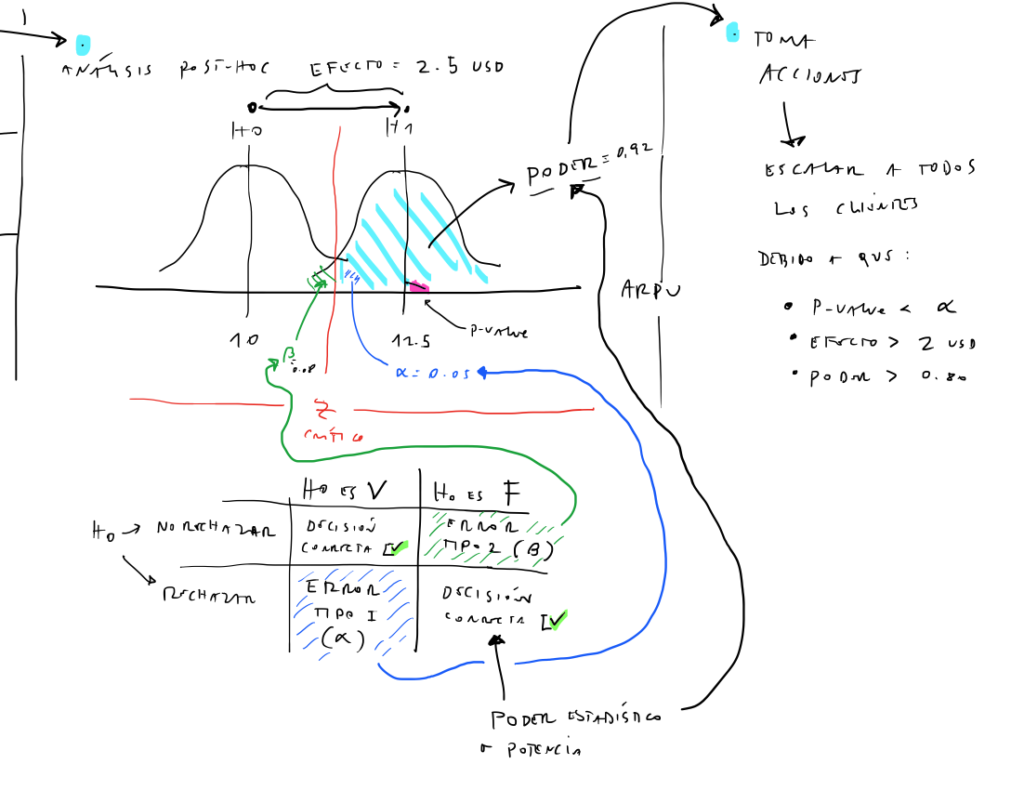 ANÁLISIS POST-HOC
EFECTO = 2.5 USD
H0
H1
PODER = 0.92
10
12.5
P-VALUE
ARPU
β = 0.08
α = 0.05
Z
CRÍTICO
H0 ES V
H0 ES F
H0
NO RECHAZAR
DECISIÓN
CORRECTA
ERROR
TIPO 2 (β)
RECHAZAR
ERROR
TIPO I
(α)
DECISIÓN
CORRECTA
PODER ESTADÍSTICO
O POTENCIA
TOMA
ACCIONES
ESCALAR A TODOS
LOS CLIENTES
DEBIDO A QUE :
• P-VALUE < α
• EFECTO > 2 USD
• PODER > 0.80